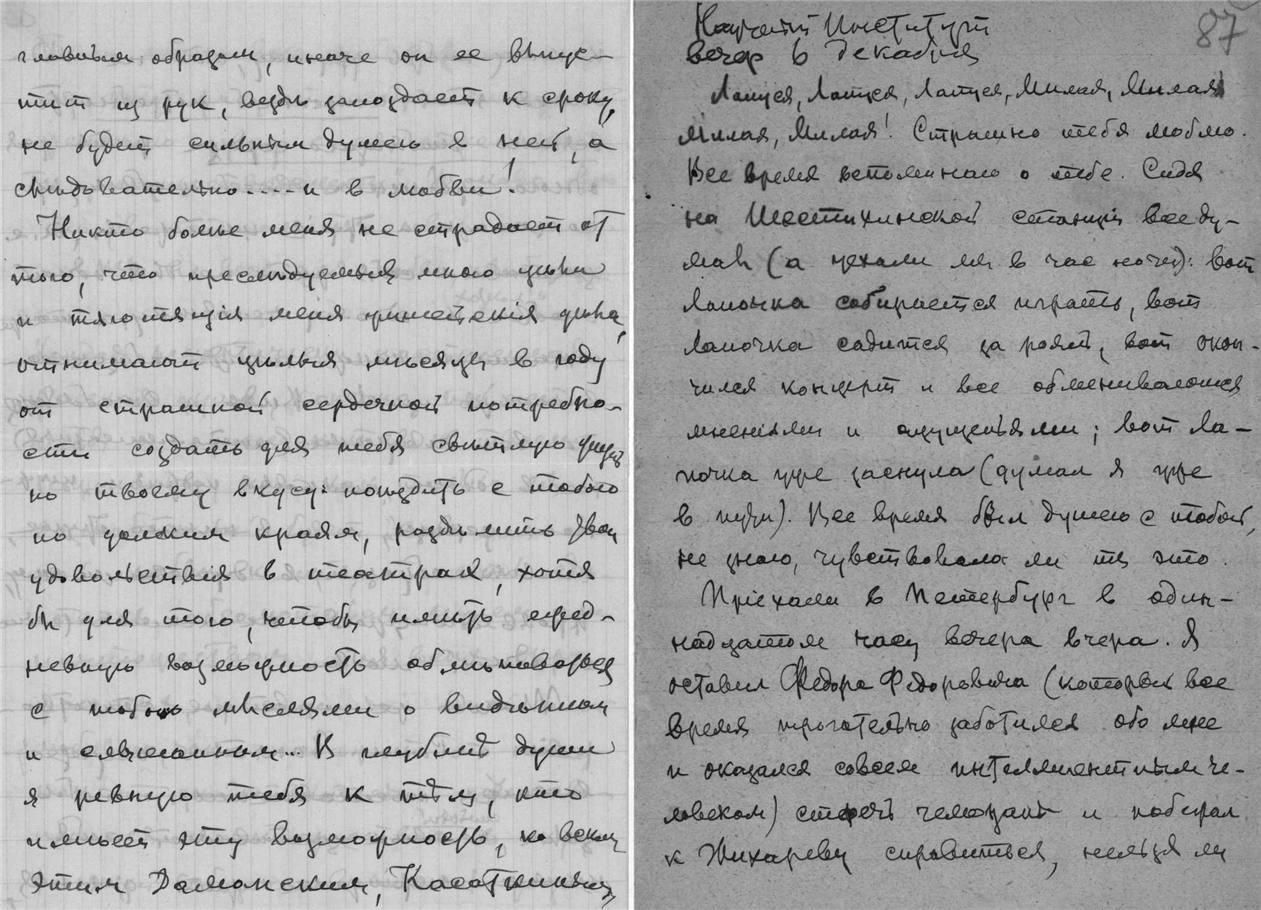 главным образом, иначе он ее выпус-
тит из рук, везде запоздает к сроку,
не будет сильным думою в ней, а
следовательно.... и в любви!
Никто более меня не страдает от
того, что преследуемыя мною цели
и тяготящия меня
отнимают целые месяцы в году
от страшной сердечной потребно-
сти создать для тебя светлую
по твоему вкусу: поездить с тобою
по далеким краям, разделить твои
удовольствия в театрах, хотя
бы для того, чтобы иметь еже-
невную возможность обмениваться
с тобою мыслями о виденном
и слышанном... В глубине души
я ревную тебя к тем, кто
имеет эту возможность, ко всем
этим Касаткиным,
87
Научный Институт
вечер 6 декабря
Лапуся, Лапуся, Лапуся, Милая, Милая
Милая, Милая! Страшно тебя люблю.
Все время вспоминаю о тебе. Сидя
на Шестихинской станции все ду-
мал (а уехали мы в час ночи): вот
Лапочка собирается играть, вот
Лапочка садится за рояль, вот окон-
чился концерт и все обмениваются
мнениями и ощущеньями; вот Ла-
почка уже заснула (думал я уже
в пути). Все время был думою с тобой,
не знаю, чувствовала ли ты это.
Приехали в Петербург в один-
надцатом часу вечера вчера. Я
оставил Федора Федоровича (который все
время трогательно заботился обо мне
и оказался совсем интеллигентным че-
ловеком) стеречь чемодан и побежал
к Жихареву справиться, нельзя ли